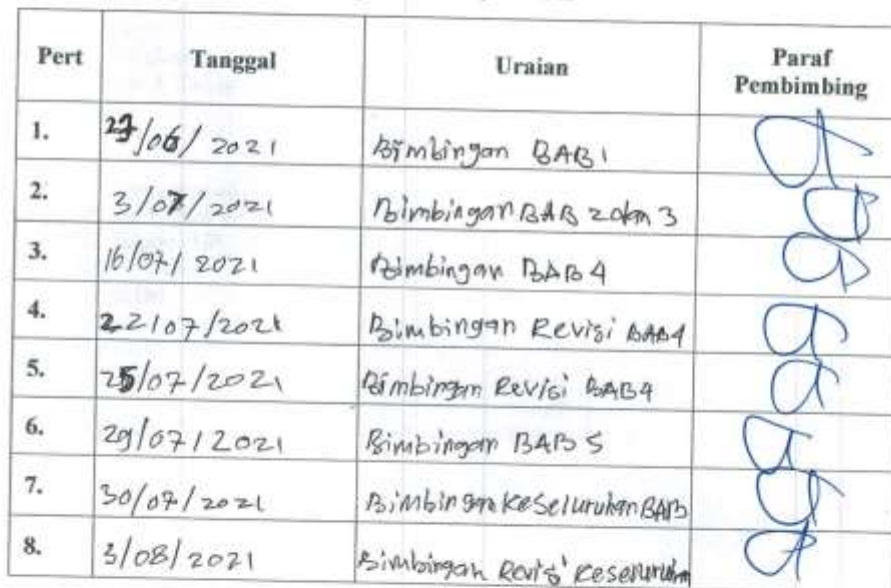 Pert Tanggal Uraian Paraf Pembimbing
1. /06/2021 Bimbingan BAB 1
2. 3/07/2021 Bimbingan BAB 2 dan 3
3. 16/07/2021 Bimbingan BAB 4
4. 22/07/2021 Bimbingan Revisi BAB4
5. 25/07/2021 Bimbingan Revisi BAB4
6. 29/07/2021 Bimbingan BAB 5
7. 30/07/2021 Bimbingan Keseluruhan BAB
8. 3/08/2021 Bimbingan Revisi Keseluruhan